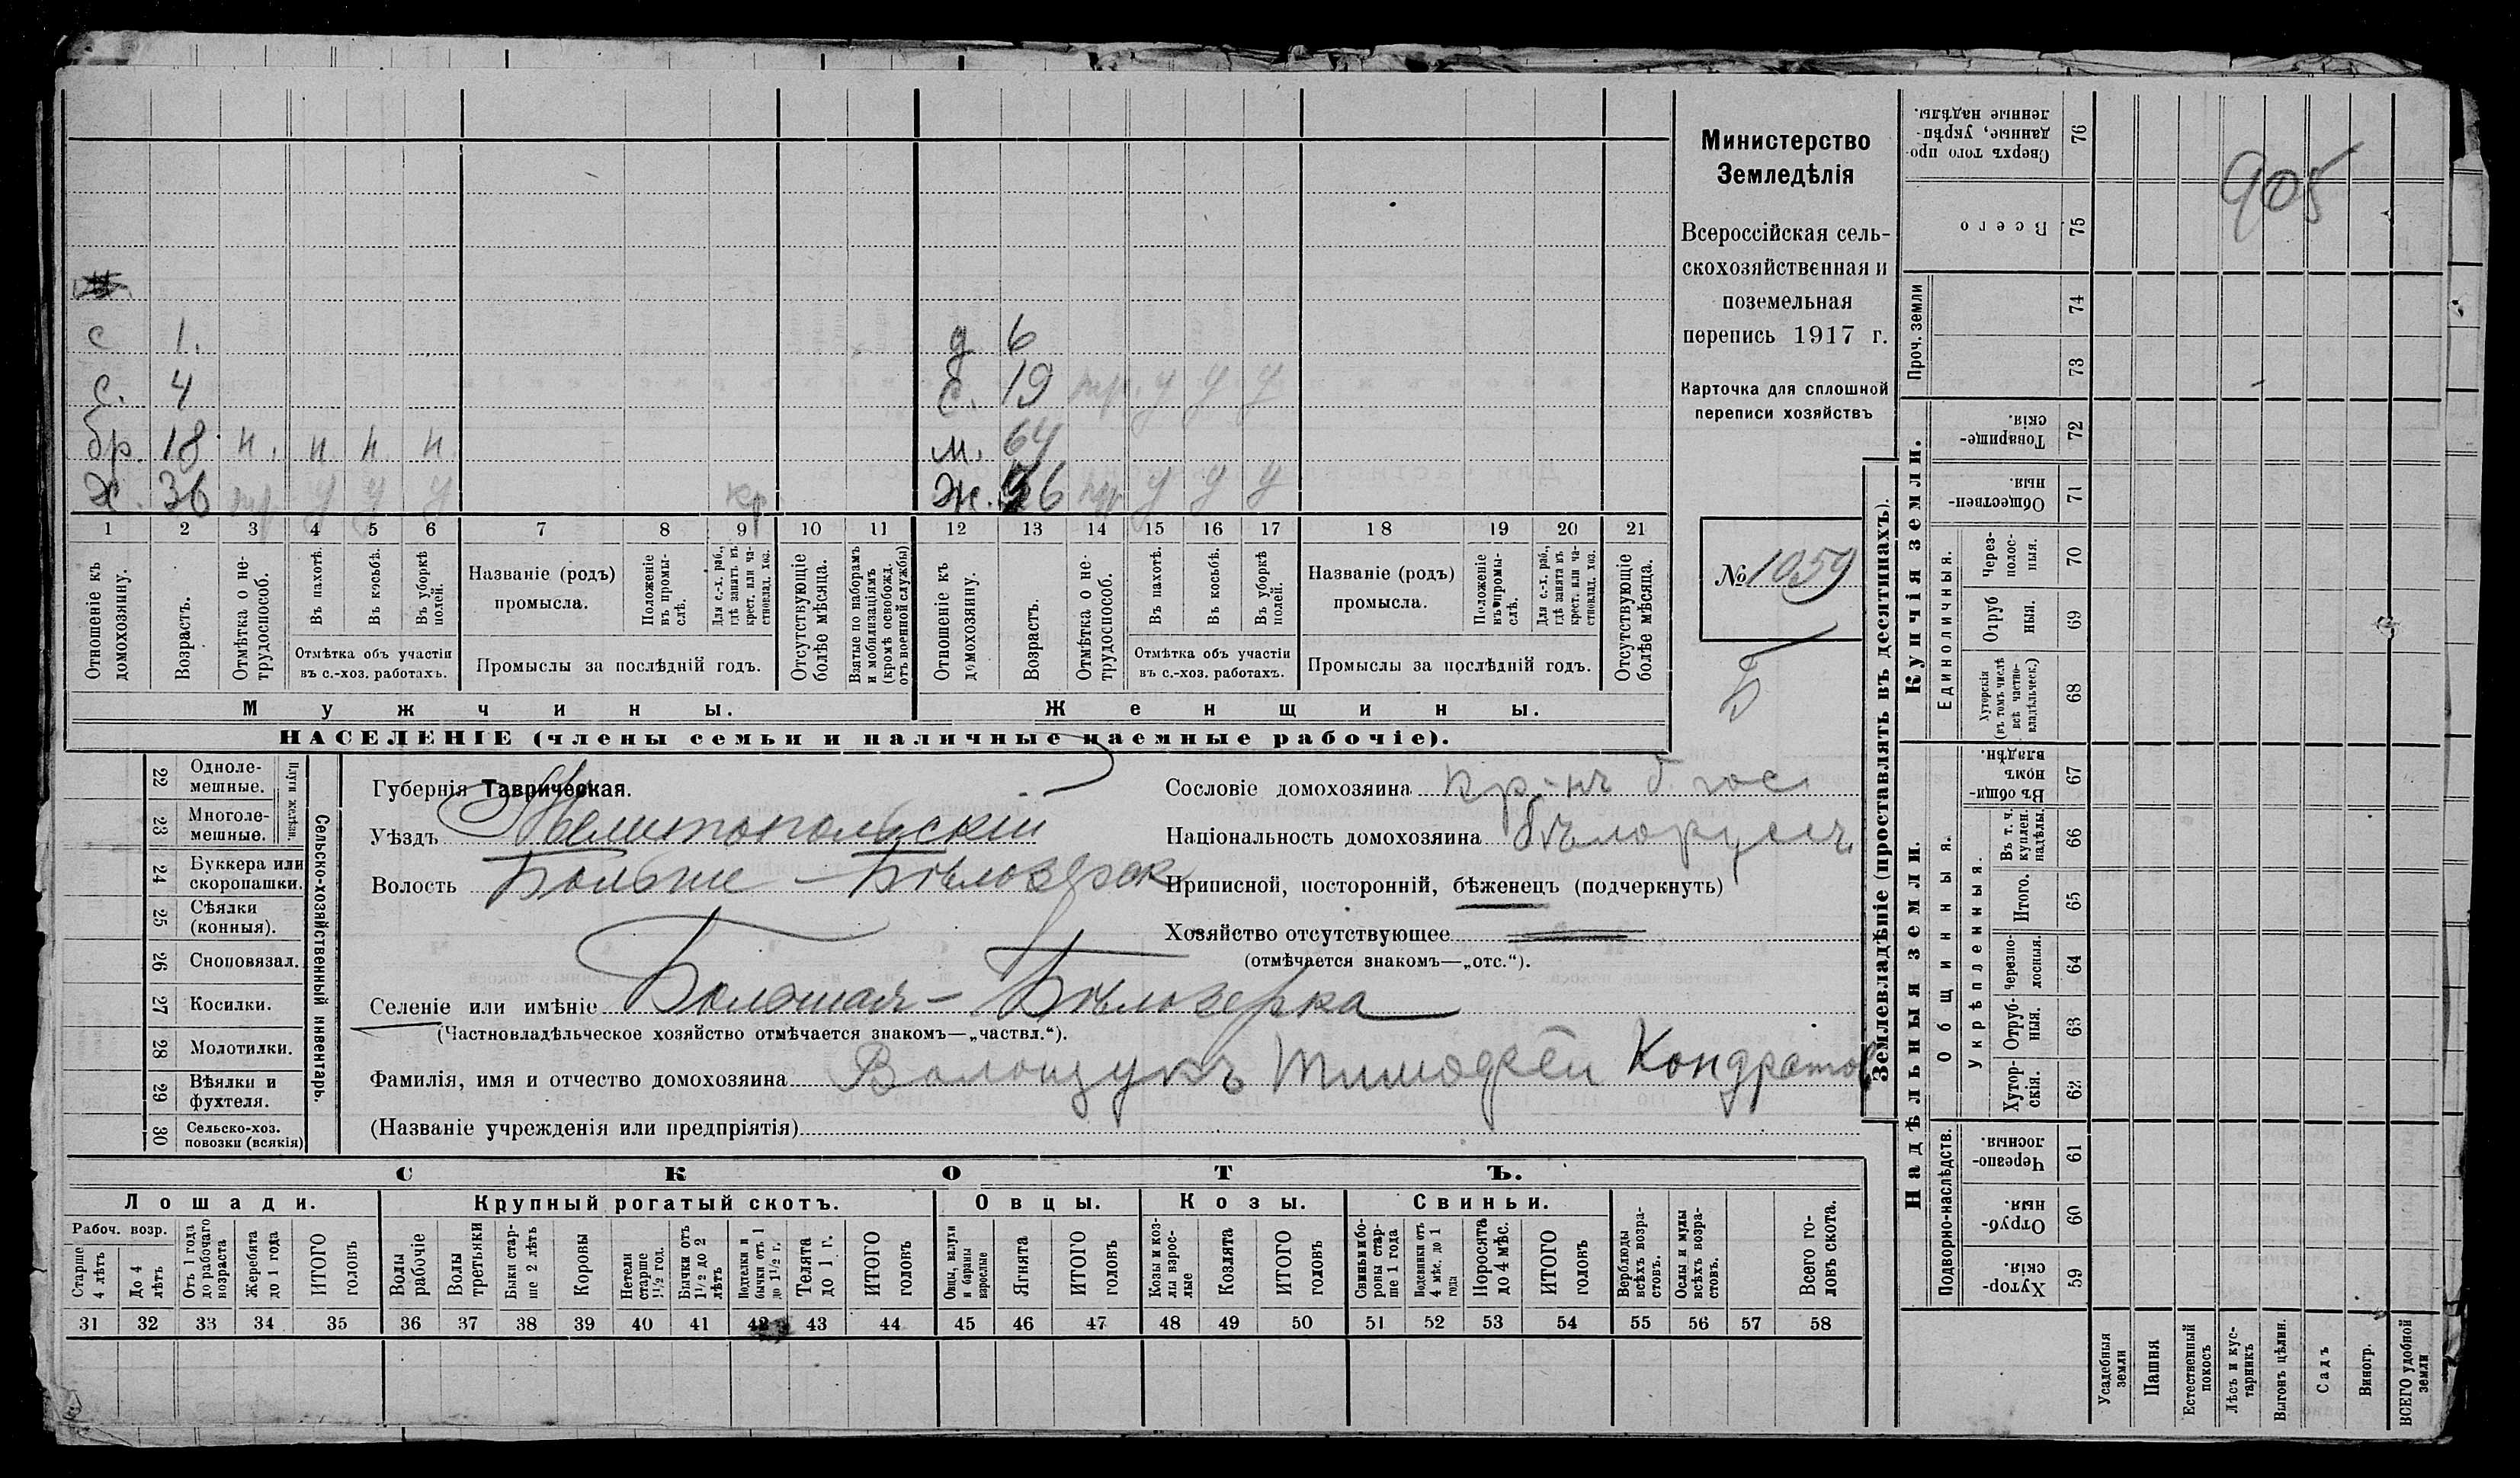 с 1. д 6
с. 4 с. 19 тр. у у у
бр. 18 н. н н н м. 64
Х. 36 тр. у у у кр. Ж. 36 тр у у у
1 2 3 4 5 6 7 8 9 10 11 12 13 14 15 16 17 18 19 20 21
Отношеніе къ домохозяину.
Возрастъ.
Отмѣтка о не-трудоспособ.
Въ пахотѣ.
Въ косьбѣ.
Въ уборкѣ полей.
Отмѣтка объ участіи
въ с.-хоз. работахъ.
Названіе (родъ)
промысла.
Положеніе въ промы-слѣ.
Для с.-х. раб., гдѣ занятъ въ крест. или ча-стновлад. хоз.
Промыслы за послѣдній годъ.
Отсутствующіе болѣе мѣсяца.
Взятые по наборамъ и мобилизаціямъ (кромѣ освобожд. отъ военной службы)
Отношеніе къ домохозяину.
Возрастъ.
Отмѣтка о не-трудоспособ.
Въ пахотѣ.
Въ косьбѣ.
Въ уборкѣ полей.
Отмѣтка объ участіи
въ с.-хоз. работахъ.
Названіе (родъ)
промысла.
Положеніе въ промы-слѣ.
Для с.-х. раб., гдѣ занята въ крест. или ча-стновлад. хоз.
Промыслы за послѣдній годъ.
Отсутствующіе болѣе мѣсяца.
Мужчины. Женщины.
НАСЕЛЕНІЕ (члены семьи и наличные наемные рабочіе).
Министерство
Земледѣлія
Всероссійская сель-
скохозяйственная и
поземельная
перепись 1917 г.
Карточка для сплошной
переписи хозяйствъ
№ 1059
Б
22 Одноле-мешные.
23 Многоле-мешные.
Плуги желѣзн.
24 Буккера или скоропашки.
25 Сѣялки (конныя).
26 Сноповязал.
27 Косилки.
28 Молотилки.
29 Вѣялки и фухтеля.
30 Сельско-хоз. повозки (всякія)
Сельско-хозяйственный инвентарь.
Губернія Таврическая.
Уѣздъ Мелитопольскій
Волость Больше-Бѣлозерск
Селеніе или имѣніе Большая-Бѣлозерка
(Частновладѣльческое хозяйство отмѣчается знакомъ—„частвл.“).
Фамилія, имя и отчество домохозяина Волощукъ Тимофей Кондратов
(Названіе учрежденія или предпріятія)
Сословіе домохозяина кр-нъ б. гос.
Національность домохозяина бѣлоруссъ
Приписной, посторонній, бѣженецъ (подчеркнуть)
Хозяйство отсутствующее
(отмѣчается знакомъ—„отс.“).
СКОТЪ.
Лошади. Крупный рогатый скотъ. Овцы. Козы. Свиньи.
Рабоч. возр.
Старше 4 лѣтъ
До 4 лѣтъ
Отъ 1 года до рабочаго возраста
Жеребята до 1 года
ИТОГО головъ
Волы рабочіе
Волы третьяки
Быки стар-ше 2 лѣтъ
Коровы
Нетели старше 1½ год.
Бычки отъ 1½ до 2 лѣтъ
Подтелки и бычки отъ 1 до 1½ г.
Телята до 1 г.
ИТОГО головъ
Овцы, валухи и бараны взрослые
Ягнята
ИТОГО головъ
Козы и коз-лы взрос-лые
Козлята
ИТОГО головъ
Свиньи и бо-ровы стар-ше 1 года
Подсвинки отъ 4 мѣс. до 1 года
Поросята до 4 мѣс.
ИТОГО головъ
Верблюды всѣхъ возра-стовъ.
Ослы и мулы всѣхъ возра-стовъ.
Всего го-ловъ скота.
31 32 33 34 35 36 37 38 39 40 41 42 43 44 45 46 47 48 49 50 51 52 53 54 55 56 57 58
Землевладѣніе (проставлять въ десятинахъ).
905
Сверхъ того про-данные, укрѣп-ленные надѣлы. 76
Всего 75
Проч. земли 74
73
Купчія земли.
Товарище-скія. 72
Обществен-ныя. 71
Единоличныя.
Через-полос-ныя. 70
Отруб ныя. 69
Хуторскія (въ томъ числѣ всѣ частно-владѣльческ.) 68
Надѣльныя земли.
Общинныя.
Въ общин-номъ владѣн. 67
Укрѣпленныя.
Въ т. ч. куплен. надѣлы. 66
Итого. 65
Черезпо-лосныя. 64
Отруб-ныя. 63
Хутор-скія. 62
Подворно-наслѣдств.
Черезпо-лосныя. 61
Отруб-ныя. 60
Хутор-скія. 59
Усадебныя земли
Пашня
Естественный покосъ
Лѣсъ и кус-тарникъ
Выгонъ цѣлин.
Садъ
Виногр.
ВСЕГО удобной земли